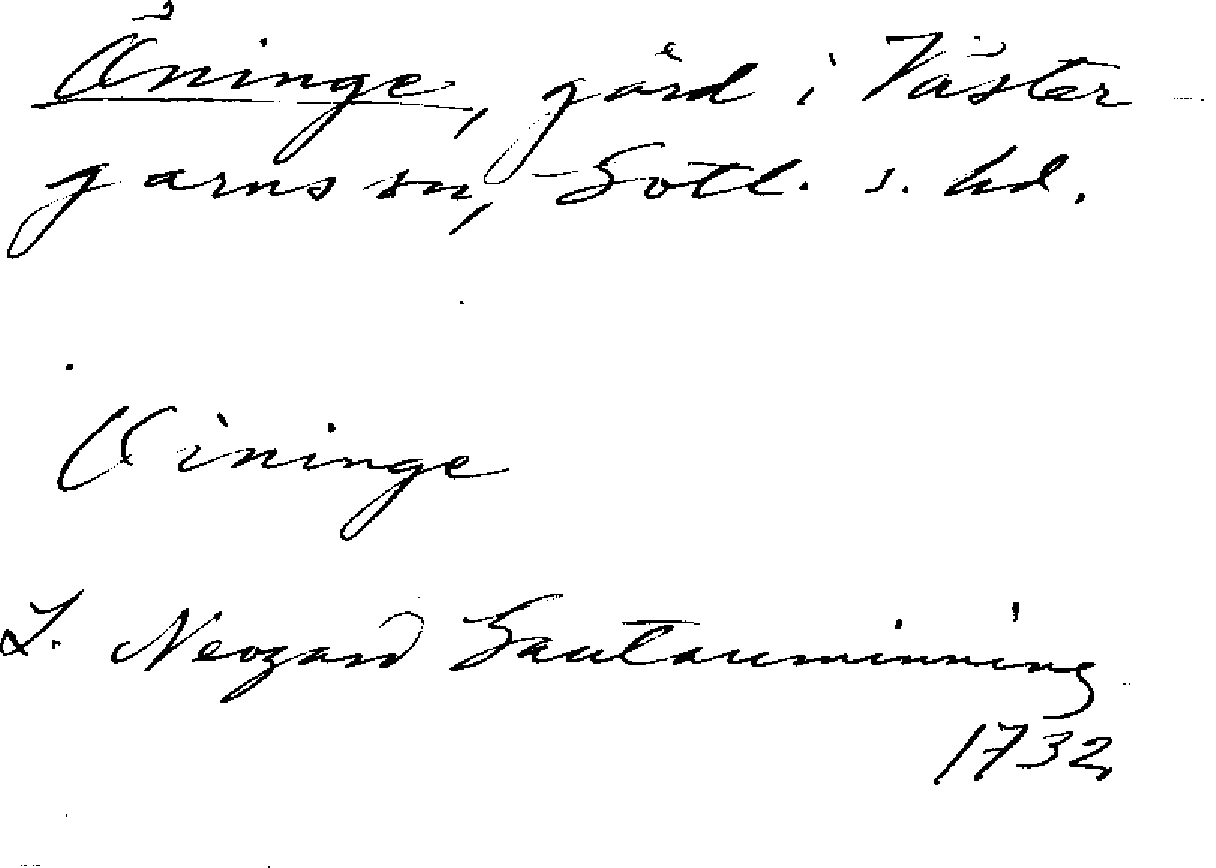 Äninge, gård i Väster-
garns sn, Gotl. s. hd.
Aininge
L. Neogard Gautauminning
1732